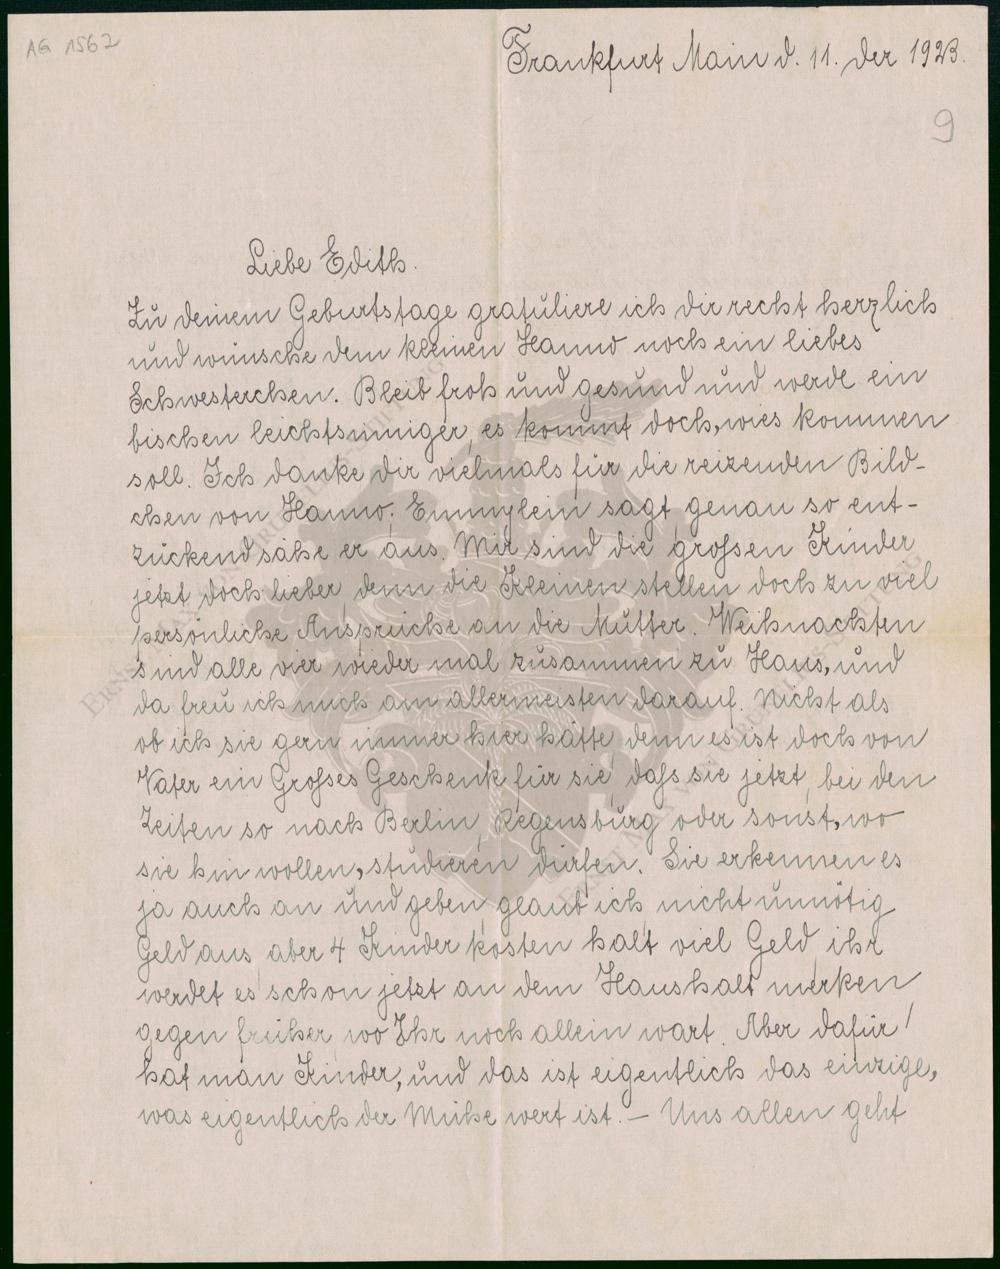 AG 1562
Frankfurt Main d. 11. Dez 1923.
9
Liebe Edith.
Zu deinem Geburtstage gratuliere ich dir recht herzlich
und wünsche dem kleinen Hanno noch ein liebes
Schwesterchen. Bleib froh und gesund und werde ein
bischen leichtsinniger, es kommt doch, wies kommen
soll. Ich danke dir vielmals für die reizenden Bild-
chen von Hanno. Emmylein sagt, genau so ent-
zückend sähe er aus. Mir sind die grofsen Kinder
jetzt doch lieber, denn die Kleinen stellen doch zu viel
persönliche Ansprüche an die Mutter. Weihnachten
sind alle vier wieder mal zusammen zu Haus, und
da freu ich mich am allermeisten darauf. Nicht als
ob ich sie gern immer hier hätte denn es ist doch von
Vater ein Grofses Geschenk für sie, dafs sie jetzt, bei den
Zeiten so nach Berlin, Regensburg oder sonst, wo
sie hin wollen, studieren dürfen. Sie erkennen es
ja auch an und geben, glaub ich, nicht unnötig
Geld aus, aber 4 Kinder kosten halt viel Geld, ihr
werdet es schon jetzt an dem Haushalt merken
gegen früher, wo Ihr noch allein wart. Aber dafür
hat man Kinder, und das ist eigentlich das einzige,
was eigentlich der Mühe wert ist. – Uns allen geht
ERNST MAX VON GRUNELIUS-STIFTUNG
ERNST MAX VON GRUNELIUS-STIFTUNG